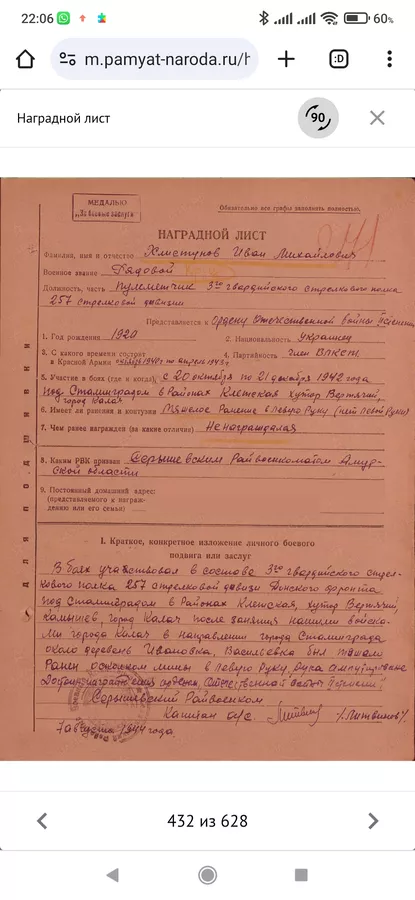 22:06
60%
m.pamyat-naroda.ru/h
:D
Наградной лист
90
МЕДАЛЬЮ
„За боевые заслуги
Обязательно все графы заполнять полностью.
НАГРАДНОЙ ЛИСТ
Фамилия, имя и отчество Хлистунов Иван Михайлович
Военное звание Рядовой
Должность, часть пулеметчик 3го гвардийского стрелкового полка
257 стрелковой дивизии
Представляется к Ордену Отечественной войны
1. Год рождения 1920 2. Национальность украинец
3. С какого времени состоит в Красной Армии 1940г по апрель 1943г 4. Партийность член ВЛКСМ
5. Участие в боях (где и когда) с 20 октября по 21 декабря 1942 года
под Сталинградом в районах Клетская хутор Вертячий,
город Калач
6. Имеет ли ранения и контузии Тяжелое ранение в левую руку (нет левой руки)
7. Чем ранее награжден (за какие отличия) Ненаграждался
8. Каким РВК призван Серышевским Райвоенкоматом Амур-
ской области
9. Постоянный домашний адрес:
(представляемого к награж-
дению или его семьи)
I. Краткое, конкретное изложение личного боевого
подвига или заслуг
В боях участвовал в составе 3го гвардийского стрел-
кового полка 257 стрелковой дивизи Донского фронта
под Сталинградом в районах Клетская, хутор Вертячий,
город Калач после занятия нашими войска-
ми города Калач в направлении города Сталинграда
около деревень Ивановка, Васильевка был тяжело
ранен осколком мины в левую руку, рука
ордена, Отечественной войны
Серышевский Райвоенком
Капитан а/с. /Литвинов/
7 августа 1944 года.
432 из 628